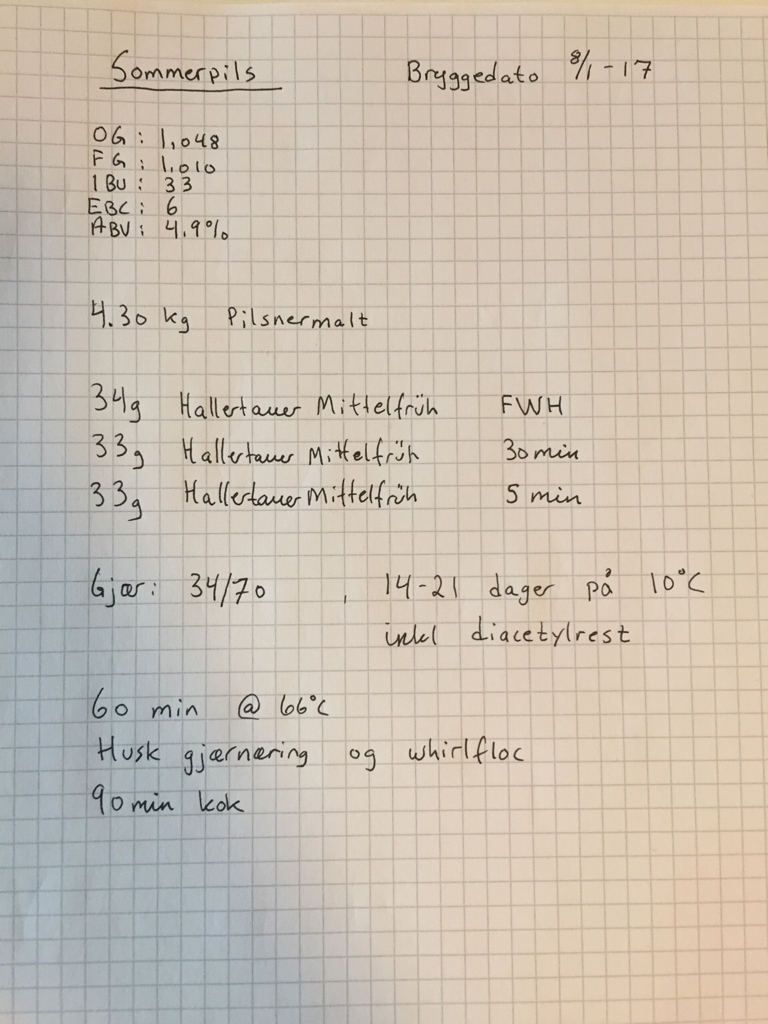 Sommerpils Bryggedato 8/1-17
OG: 1,048
FG: 1,010
IBU: 33
EBC: 6
ABV: 4,9%
4.30 kg Pilsnermalt
34g Hallertauer Mittelfrüh FWH
33g Hallertauer Mittelfrüh 30 min
33g Hallertauer Mittelfrüh 5 min
Gjær: 34/70 , 14-21 dager på 10°C
inkl diacetylrest
60 min @ 66°C
Husk gjærnæring og whirlfloc
90 min kok